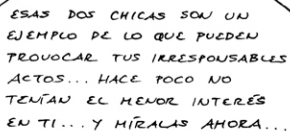 ESAS DOS CHICAS SON UN
EJEMPLO DE LO QUE PUEDEN
PROVOCAR TUS IRRESPONSABLES
ACTOS... HACE POCO NO
TENÍAN EL MENOR INTERÉS
EN TI... Y MÍRALAS AHORA...